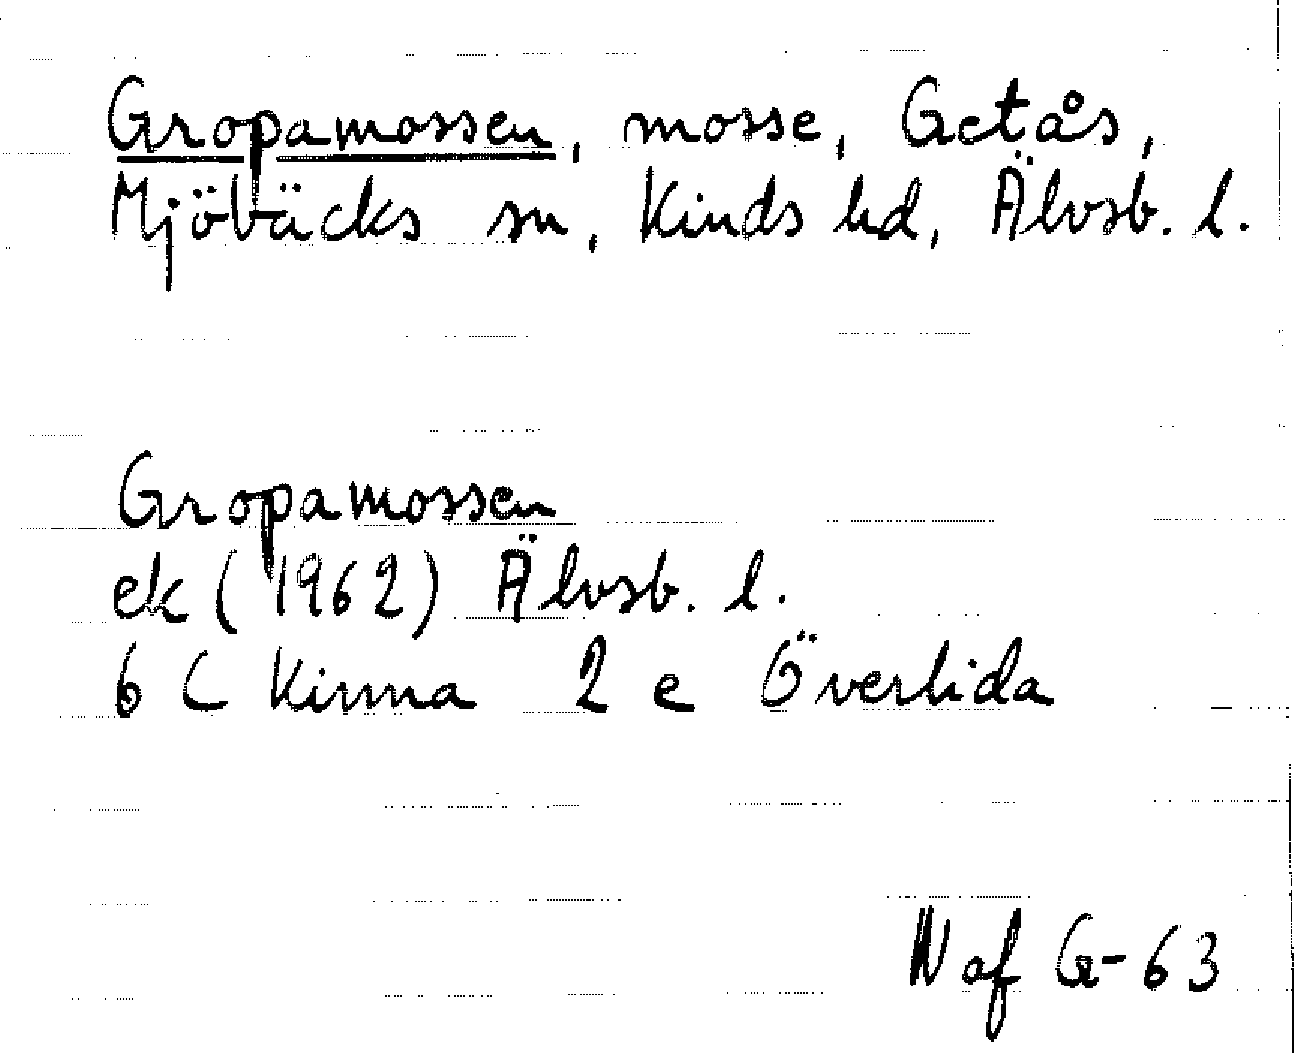 Gropamossen, mosse, Getås,
Mjöbäcks sn, Kinds hd, Älvsb. l.
Gropamossen
ek (1962) Älvsb. l.
6 C Kinna 2 e Överlida
N af G-63